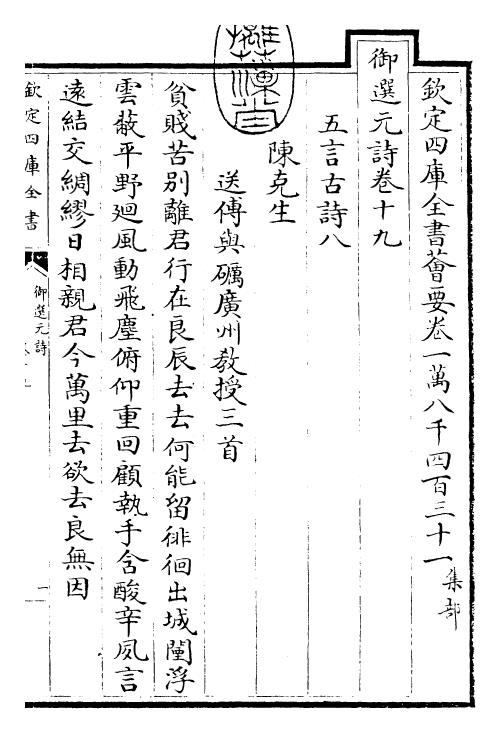 欽定四庫全書薈要卷一萬八千四百三十一集部
御選元詩卷十九
五言古詩八
陳克生
送傅與礪廣州教授三首
貧賤苦別離君行在良辰去去何能留徘徊出城闉浮
雲蔽平野廻風動飛塵俯仰重回顧執手含酸辛夙言
遠結交綢繆日相親君今萬里去欲去良無因
欽定四庫全書
御選元詩
一